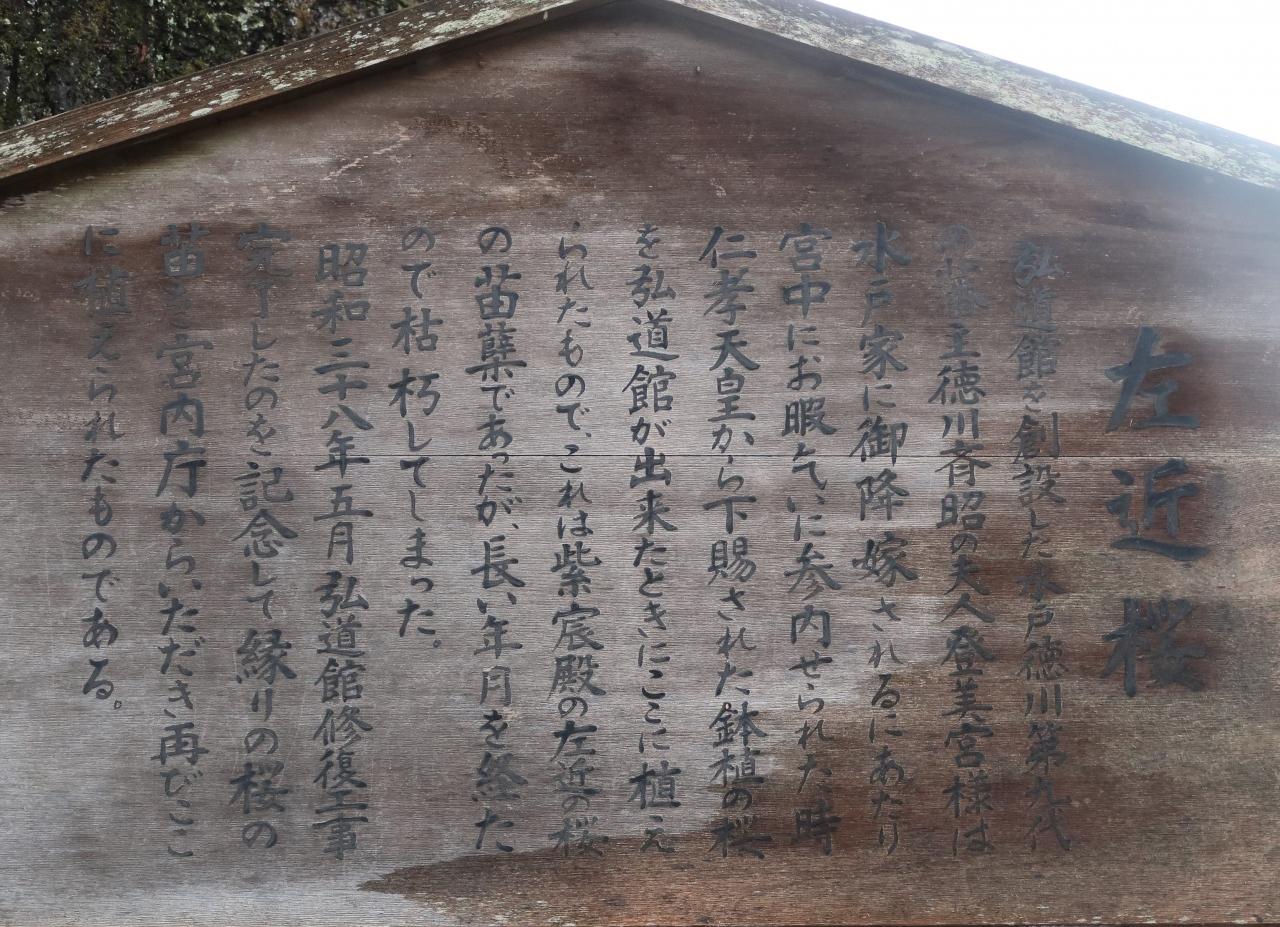 左近桜
弘道館を創設した水戸徳川第九代
の藩主徳川斉昭の夫人登美宮様は
水戸家に御降嫁されるにあたり
宮中にお暇乞いに参内せられた時
仁孝天皇から下賜された鉢植の桜
を弘道館が出来たときにここに植え
られたもので、これは紫宸殿の左近の桜
の苗蘖であったが、長い年月を経た
ので枯朽してしまった。
昭和三十八年五月弘道館修復工事
完了したのを記念して縁りの桜の
苗を宮内庁からいただき再びここ
に植えられたものである。